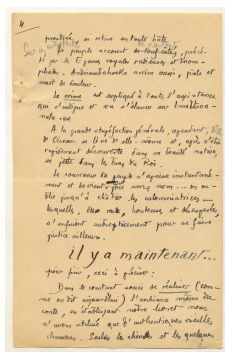 4
prosternée, se retire en toute hâte.
Le peuple accourt en tout sens, précé-
dé par les Eganes royales valièces et triom-
phale. Andriambahoaka arrive aussi, pâle et
mort de douleur.
Le crime est expliqué à toute l'assistance,
qui s'indigne et va s'élancer sur Imaitsoa-
nala
A la grande stupéfaction générale, cependant,
l'Oiseau se lève d'elle-même et, après s'être
rapidement découverte dans sa beauté native,
se jette dans les bras du Roi.
Le courroux du peuple s'apaise instantané-
ment et devient sans nom... on ou-
blie jusqu'à châtier les calomniatrices
lesquelles, honteuses, et
s'enfuient subrepticement pour se faire
justice ailleurs.
il y a maintenant...
pour finir, ceci à préciser :
Dans le constant souci de réaliser (com-
me on dit aujourd'hui) l'ambiance même du
conte, en établissant notre livret nous
n'avons utilisé que d'authentiques vieilles
chansons. Seules la chevelée et les quelques